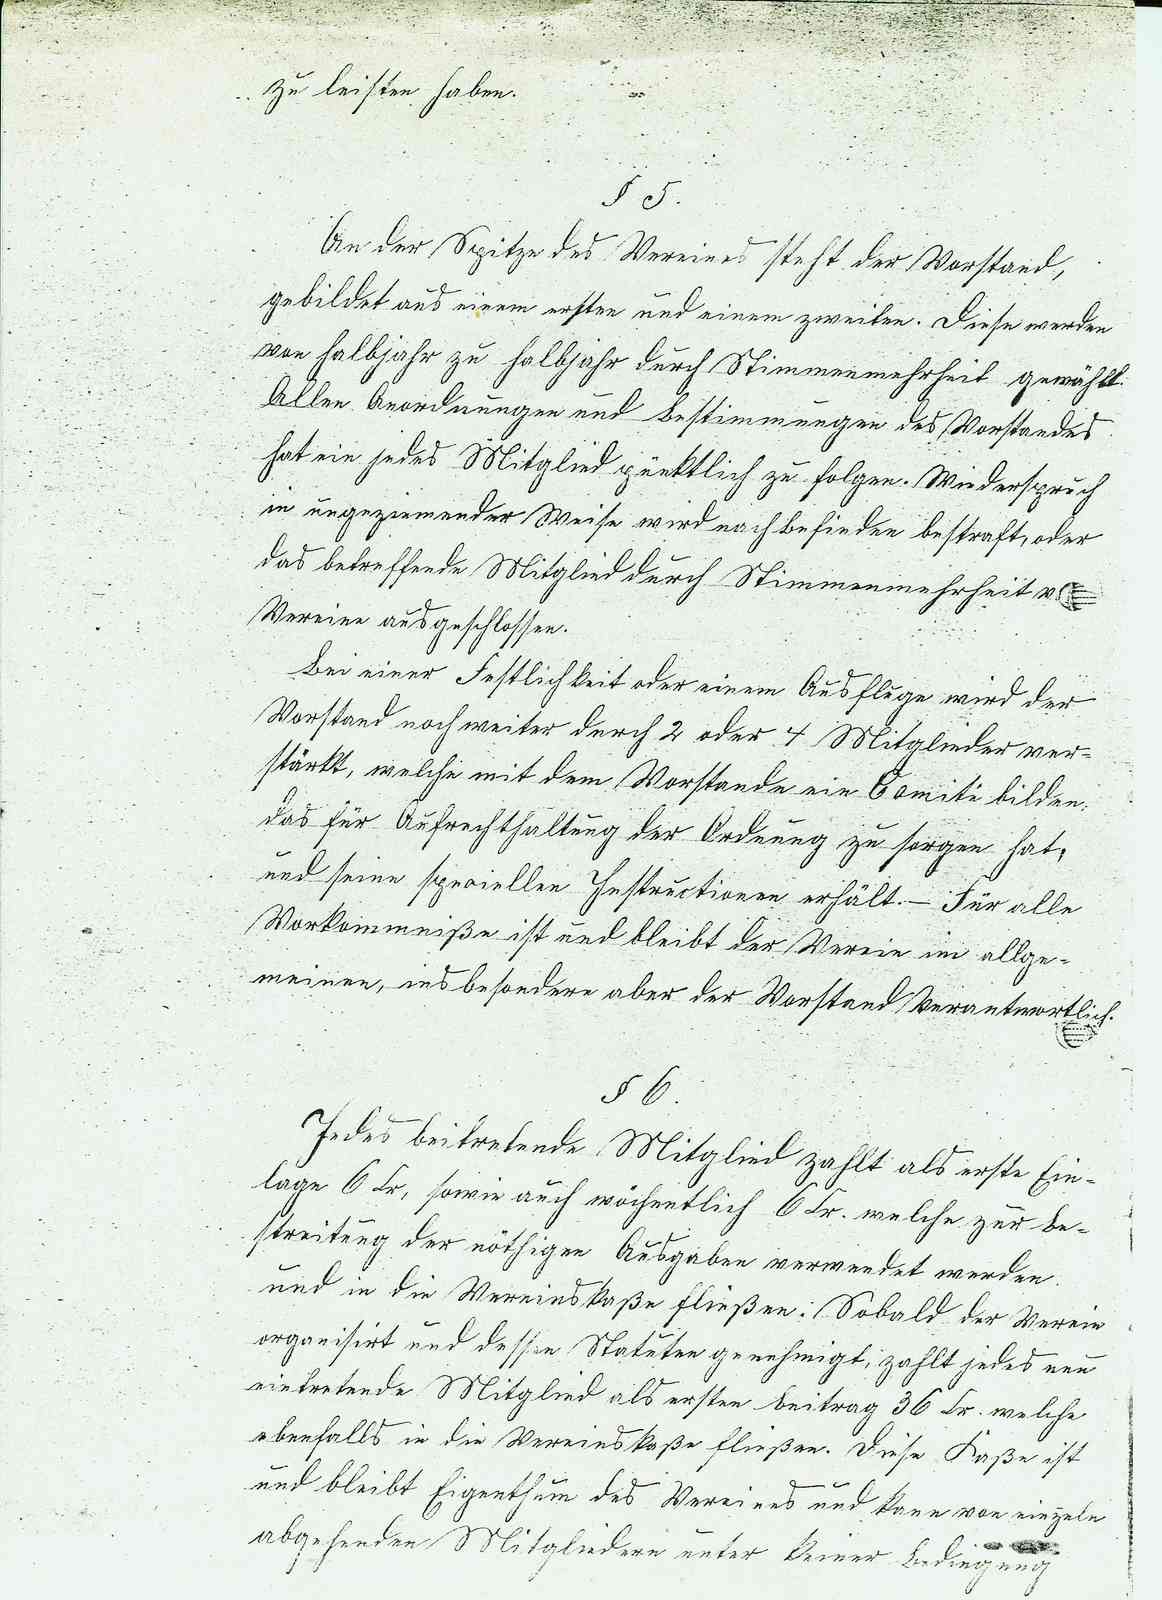 zu leisten haben.
§ 5.
An der Spitze des Vereines steht der Vorstand,
gebildet aus einem ersten und einem zweiten. Diese werden
von Halbjahr zu Halbjahr durch Stimmenmehrheit gewählt.
Allen Anordnungen und Bestimmungen des Vorstandes
hat ein jedes Mitglied pünktlich zu folgen. Wiederspruch
in ungeziemender Weise wird nach Befinden bestraft, oder
das betreffende Mitglied durch Stimmenmehrheit
Vereine ausgeschlossen.
Bei einer Festlichkeit oder einem Ausfluge wird der
Vorstand noch weiter durch 2 oder 4 Mitglieder ver-
stärkt, welche mit dem Vorstande ein Comite bilden,
das für Aufrechthaltung der Ordnung zu sorgen hat,
und seine speciellen Instructionen erhält. — Für alle
Vorkommniße ist und bleibt der Verein im allge-
meinen, insbesondere aber der Vorstand verantwortlich.
§ 6.
Jedes beitretende Mitglied zahlt als erste Ein-
lage 6 Kr, sowie auch wöchentlich 6 Kr. welche zur Be-
streitung der nöthigen Ausgaben verwendet werden
und in die Vereinskaße fließen. Sobald der Verein
organisirt und dessen Statuten genehmigt, zahlt jedes neu
eintretende Mitglied als ersten Beitrag 36 Kr. welche
ebenfalls in die Vereinskaße fließen. Diese Kaße ist
und bleibt Eigenthum des Vereines und kann von einzeln
abgehenden Mitgliedern unter keiner Bedingung